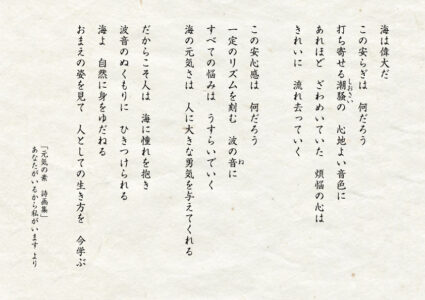 海は偉大だ
この安らぎは 何だろう
打ち寄せる潮騒の 心地よい音色に
しおさい
あれほど ざわめいていた 煩悩の心は
きれいに 流れ去っていく
この安心感は 何だろう
一定のリズムを刻む 波の音に
ね
すべての悩みは うすらいでいく
海の元気さは 人に大きな勇気を与えてくれる
だからこそ人は 海に憧れを抱き
波音のぬくもりに ひきつけられる
海よ 自然に身をゆだねる
おまえの姿を見て 人としての生き方を 今学ぶ
「元気の素 詩画集」
あなたがいるから私がいます より